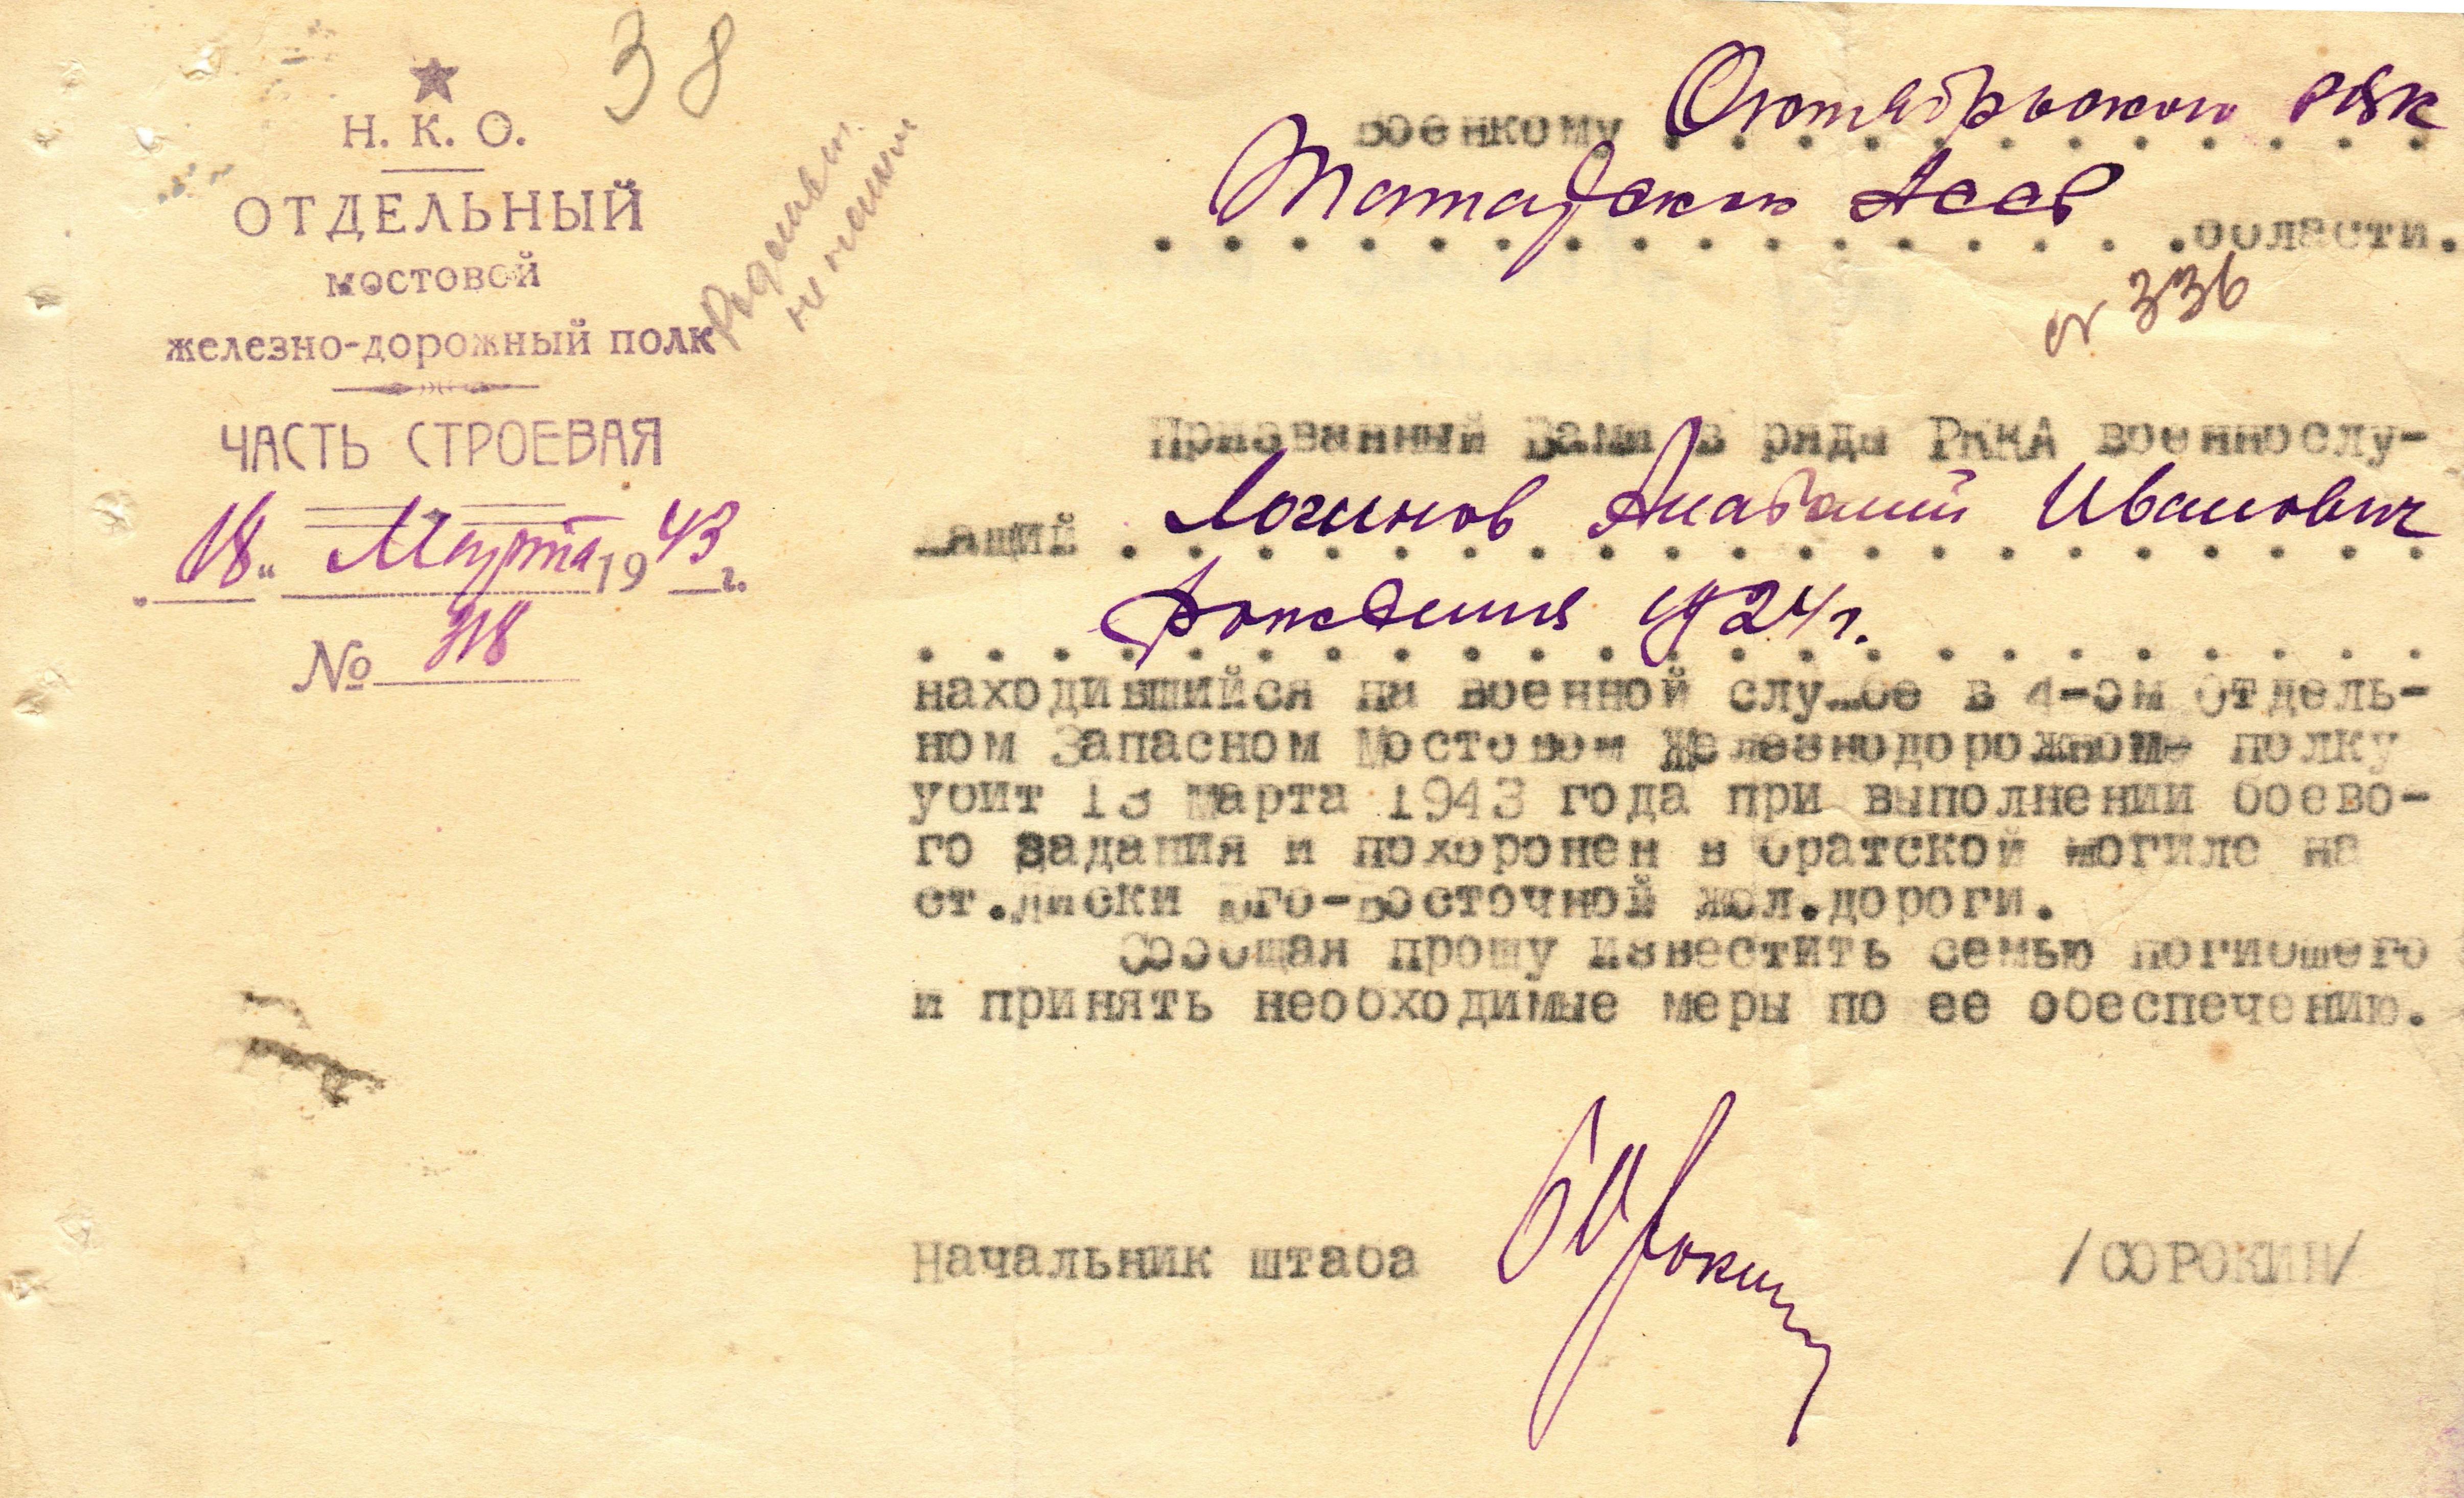 38
Н. К. О.
ОТДЕЛЬНЫЙ
мостовой
железно-дорожный полк
ЧАСТЬ СТРОЕВАЯ
"18" Марта 1943 г.
№ 318
не
Военкому Октябрьского РВК
Татарской АССР
области.
№ 336
Призванный Вами в ряды РККА военнослу-
жащий Логинов Анатолий Иванович
рождения 1924 г.
находившийся на военной службе в 4-ом Отдель-
ном Запасном Мостовом Железнодорожном полку
убит 13 марта 1943 года при выполнении боево-
го задания и похоронен в братской могиле на
ст.Лиски Юго-Восточной жел.дороги.
Сообщая прошу известить семью погибшего
и принять необходимые меры по ее обеспечению.
Начальник штаба Сорокин /СОРОКИН/